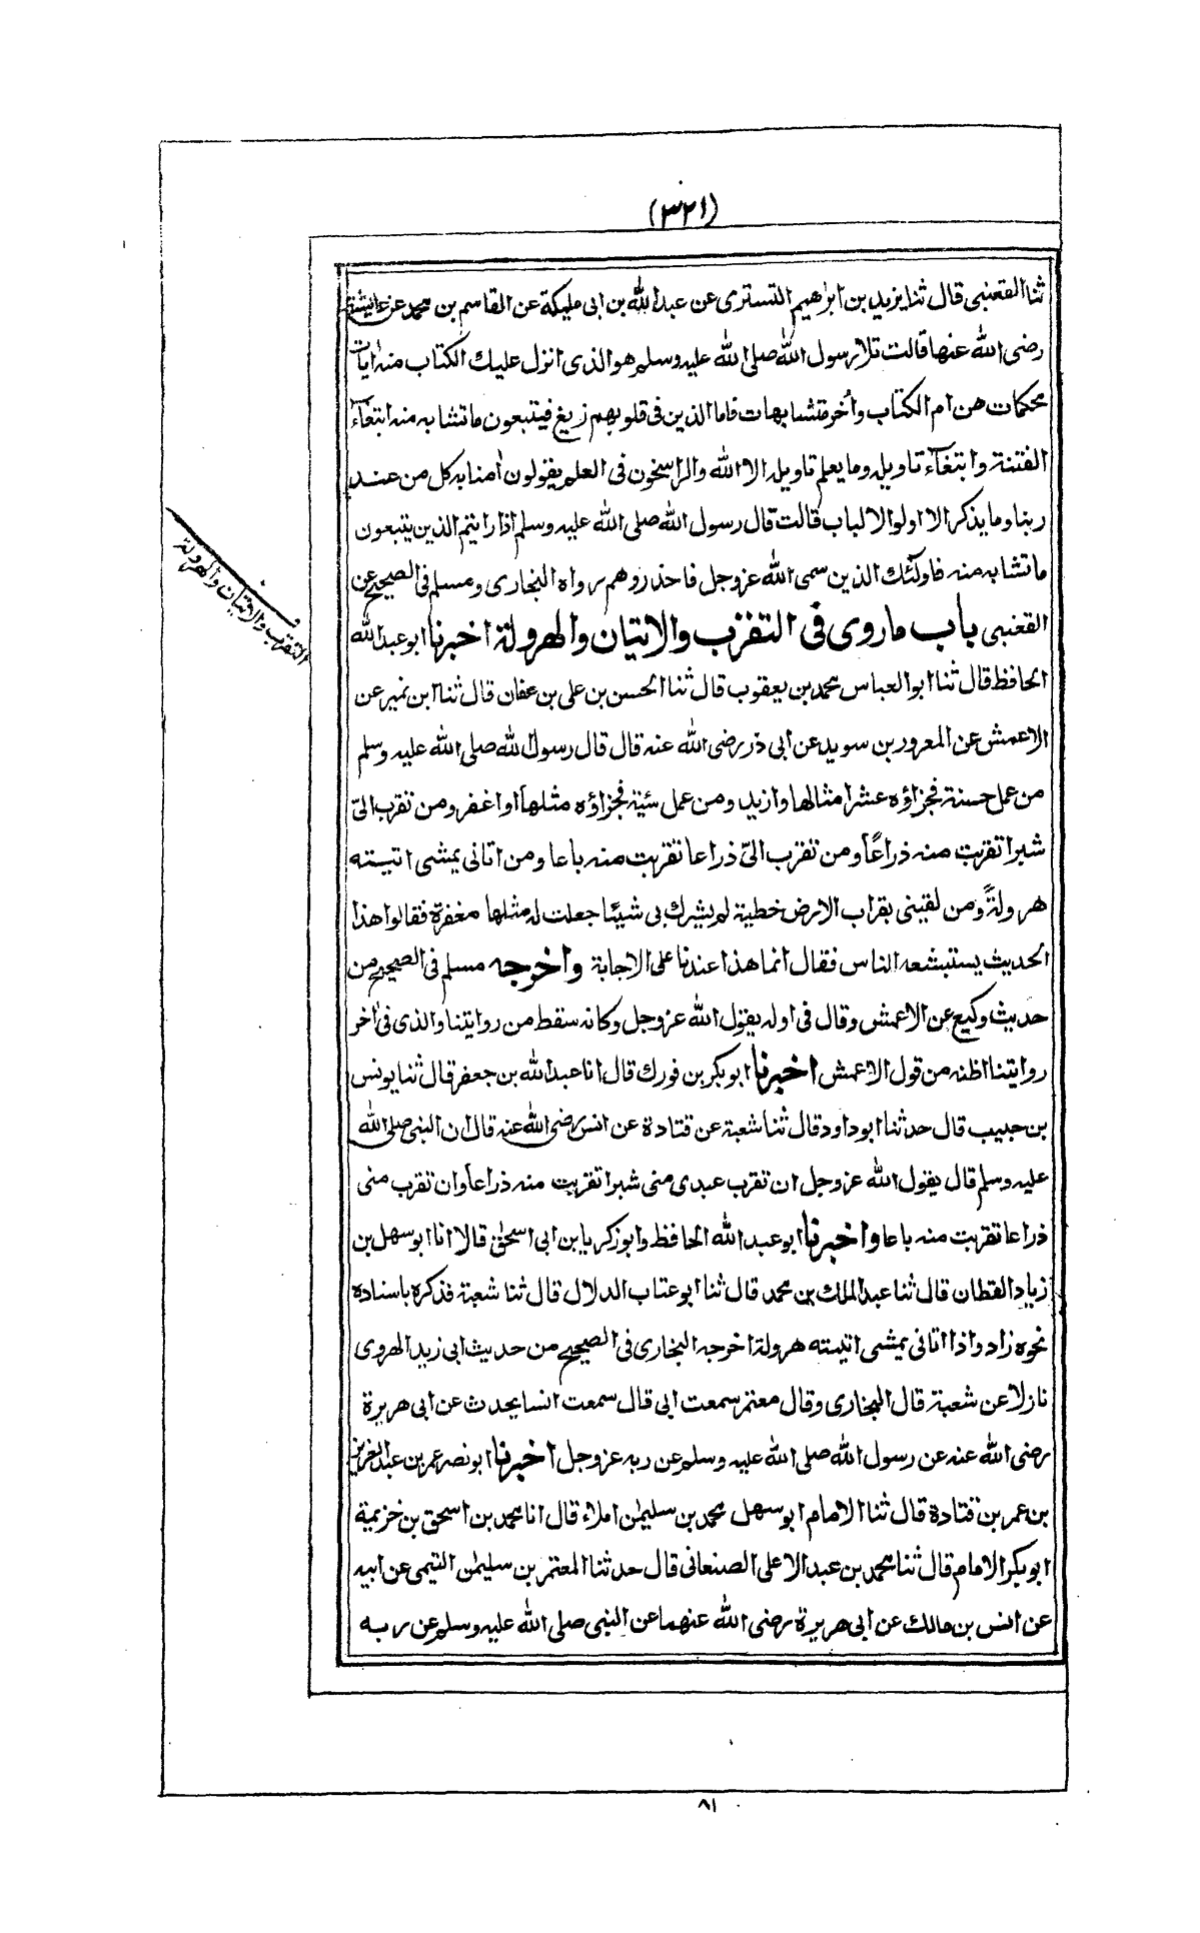 (٣٢١)
ثنا القعنبى قال ثنا يزيد بن ابرٰهيم التسترى عن عبد الله بن ابى مليكة عن القاسم بن محمد عن عائشة
رضى الله عنها قالت تلا رسول الله صلى الله عليه وسلم هو الذى انزل عليك الكتاب منه اٰيات
محكمات هن ام الكتاب واُخر متشابهات فاما الذين فى قلوبهم زيغ فيتبعون ما تشابه منه ابتغآء
الفتنة وابتغآء تاويله وما يعلم تاويله الا الله والراسخون فى العلم يقولون اٰمنا به كل من عند
ربنا وما يذكر الا اولوا الالباب قالت قال رسول الله صلى الله عليه وسلم اذا رايتم الذين يتبعون
ما تشابه منه فاولٰئك الذين سمى الله عز وجل فاحذروهم رواه البخارى ومسلم فى الصحيح عن
القعنبى باب ما روى فى التقرب والاتيان والهرولة اخبرنا ابو عبد الله
التقرب والاتيان والهرولة
الحافظ قال ثنا ابو العباس محمد بن يعقوب قال ثنا الحسن بن على بن عفان قال ثنا ابن نمير عن
الاعمش عن المعرور بن سويد عن ابى ذر رضى الله عنه قال قال رسول الله صلى الله عليه وسلم
من عمل حسنة فجزاؤه عشر امثالها وازيد ومن عمل سيئة فجزاؤه مثلها او اغفر ومن تقرب الىّ
شبرا تقربت منه ذراعًا ومن تقرب الىّ ذراعا تقربت منه باعا ومن اتانى يمشى اتيته
هرولةً ومن لقينى بقراب الارض خطيئة لم يشرك بى شيئا جعلت له مثلها مغفرة فقالوا هذا
الحديث يستبشعه الناس فقال انما هذا عندنا على الاجابة واخرجه مسلم فى الصحيح من
حديث وكيع عن الاعمش وقال فى اوله يقول الله عز وجل وكانه سقط من روايتنا والذى فى اٰخر
روايتنا اظنه من قول الاعمش اخبرنا ابو بكر بن فورك قال انا عبد الله بن جعفر قال ثنا يونس
بن حبيب قال حدثنا ابو داود قال ثنا شعبة عن قتادة عن انس رضى الله عنه قال ان النبى صلى الله
عليه وسلم قال يقول الله عز وجل ان تقرب عبدى منى شبرا تقربت منه ذراعا وان تقرب منى
ذراعا تقربت منه باعا واخبرنا ابو عبد الله الحافظ وابو زكريا بن ابى اسحٰق قالا انا ابو سهل بن
زياد القطان قال ثنا عبد الملك بن محمد قال ثنا ابو عتاب الدلال قال ثنا شعبة فذكره باسناده
نحوه زاد واذا اتانى يمشى اتيته هرولة اخرجه البخارى فى الصحيح من حديث ابى زيد الهروى
نازلا عن شعبة قال البخارى وقال معتمر سمعت ابى قال سمعت انسا يحدث عن ابى هريرة
رضى الله عنه عن رسول الله صلى الله عليه وسلم عن ربه عز وجل اخبرنا ابو نصر عمر بن عبد العزيز
بن عمر بن قتادة قال ثنا الامام ابو سهل محمد بن سليمٰن املاء قال انا محمد بن اسحق بن خزيمة
ابو بكر الامام قال ثنا محمد بن عبد الاعلى الصنعانى قال حدثنا المعتمر بن سليمٰن التيمى عن ابيه
عن انس بن مالك عن ابى هريرة رضى الله عنهما عن النبى صلى الله عليه وسلم عن ربه
٨١